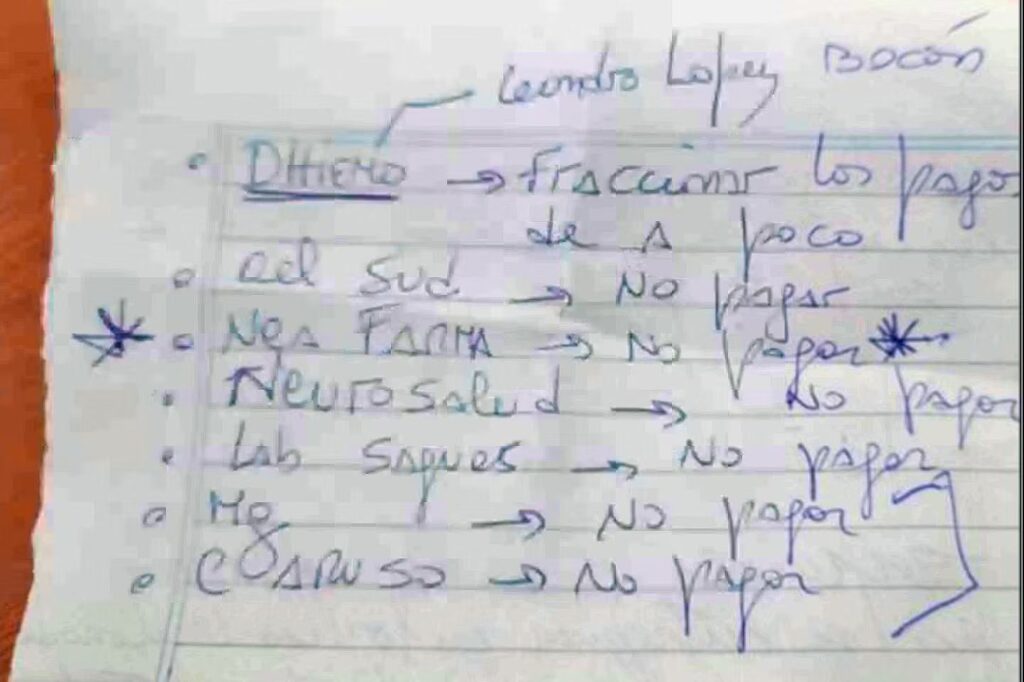 Leandro Lopez Bocón
• DHiemo → Fraccionar los pagos
de a poco
• del Sud → No pagar
* • Nea Farma → No pagar *
• Neurosalud → No pagar
• Lab Sagues → No pagar
• Mg → No pagar
• Caruso → No pagar